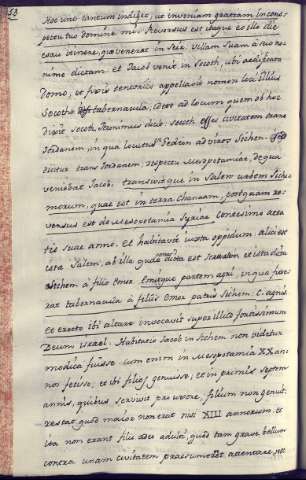 58
Hoc uno tantum indigeo, ut inveniam gratiam in cons-
pectu tuo domine mi. Reversus est itaque eo illo die
Esau itinere, quo venerat in Seir. Villam suam à suo no-
mine dictam et Jacob venit in Socoth, ubi aedificata
domo, et fixis tentoriis appellavit nomen loci illius
Socoth tabernacula, ideo ad locum quem ob hoc
dixit Socoth, Pervenimus dicit. Socoth esse civitatem trans
Jordanem, in qua locutus Gedeon ad viros Sichem.
dicitur trans Jordanem, respectu Mesopotamiae, de qua
veniebat Jacob, transivitque in Salem urbem Siche
morum, quae est in terra Chanaam, postquam re-
versus est de Mesopotamia Syriae Centesimo aeta
tis suae anno, et habitavit iuxta oppidum. alia est
ista Salem, ab illa quae dicta est Jerusalem et ista dicta
Sichem à filio Emor. Emitque partem agri, in qua fixe-
rat tabernacula à filiis Emor patris Sichem C. agnis,
et erecto ibi altare invocavit super illud fortissimum
Deum Israel. Habitatio Jacob in Sichem non videtur
modica fuisse cum enim in Mesopotamia XX an-
nos fecisset, et ibi filios genuisset, et in primis septem
annis, quibus servivit pro uxore, filium non genuit,
restat quod maior non erat nisi XIII annorum, et
ita non erant filii adeo adulti, quod tam grave bellum
contra unam civitatem praesumerent attentare, pro